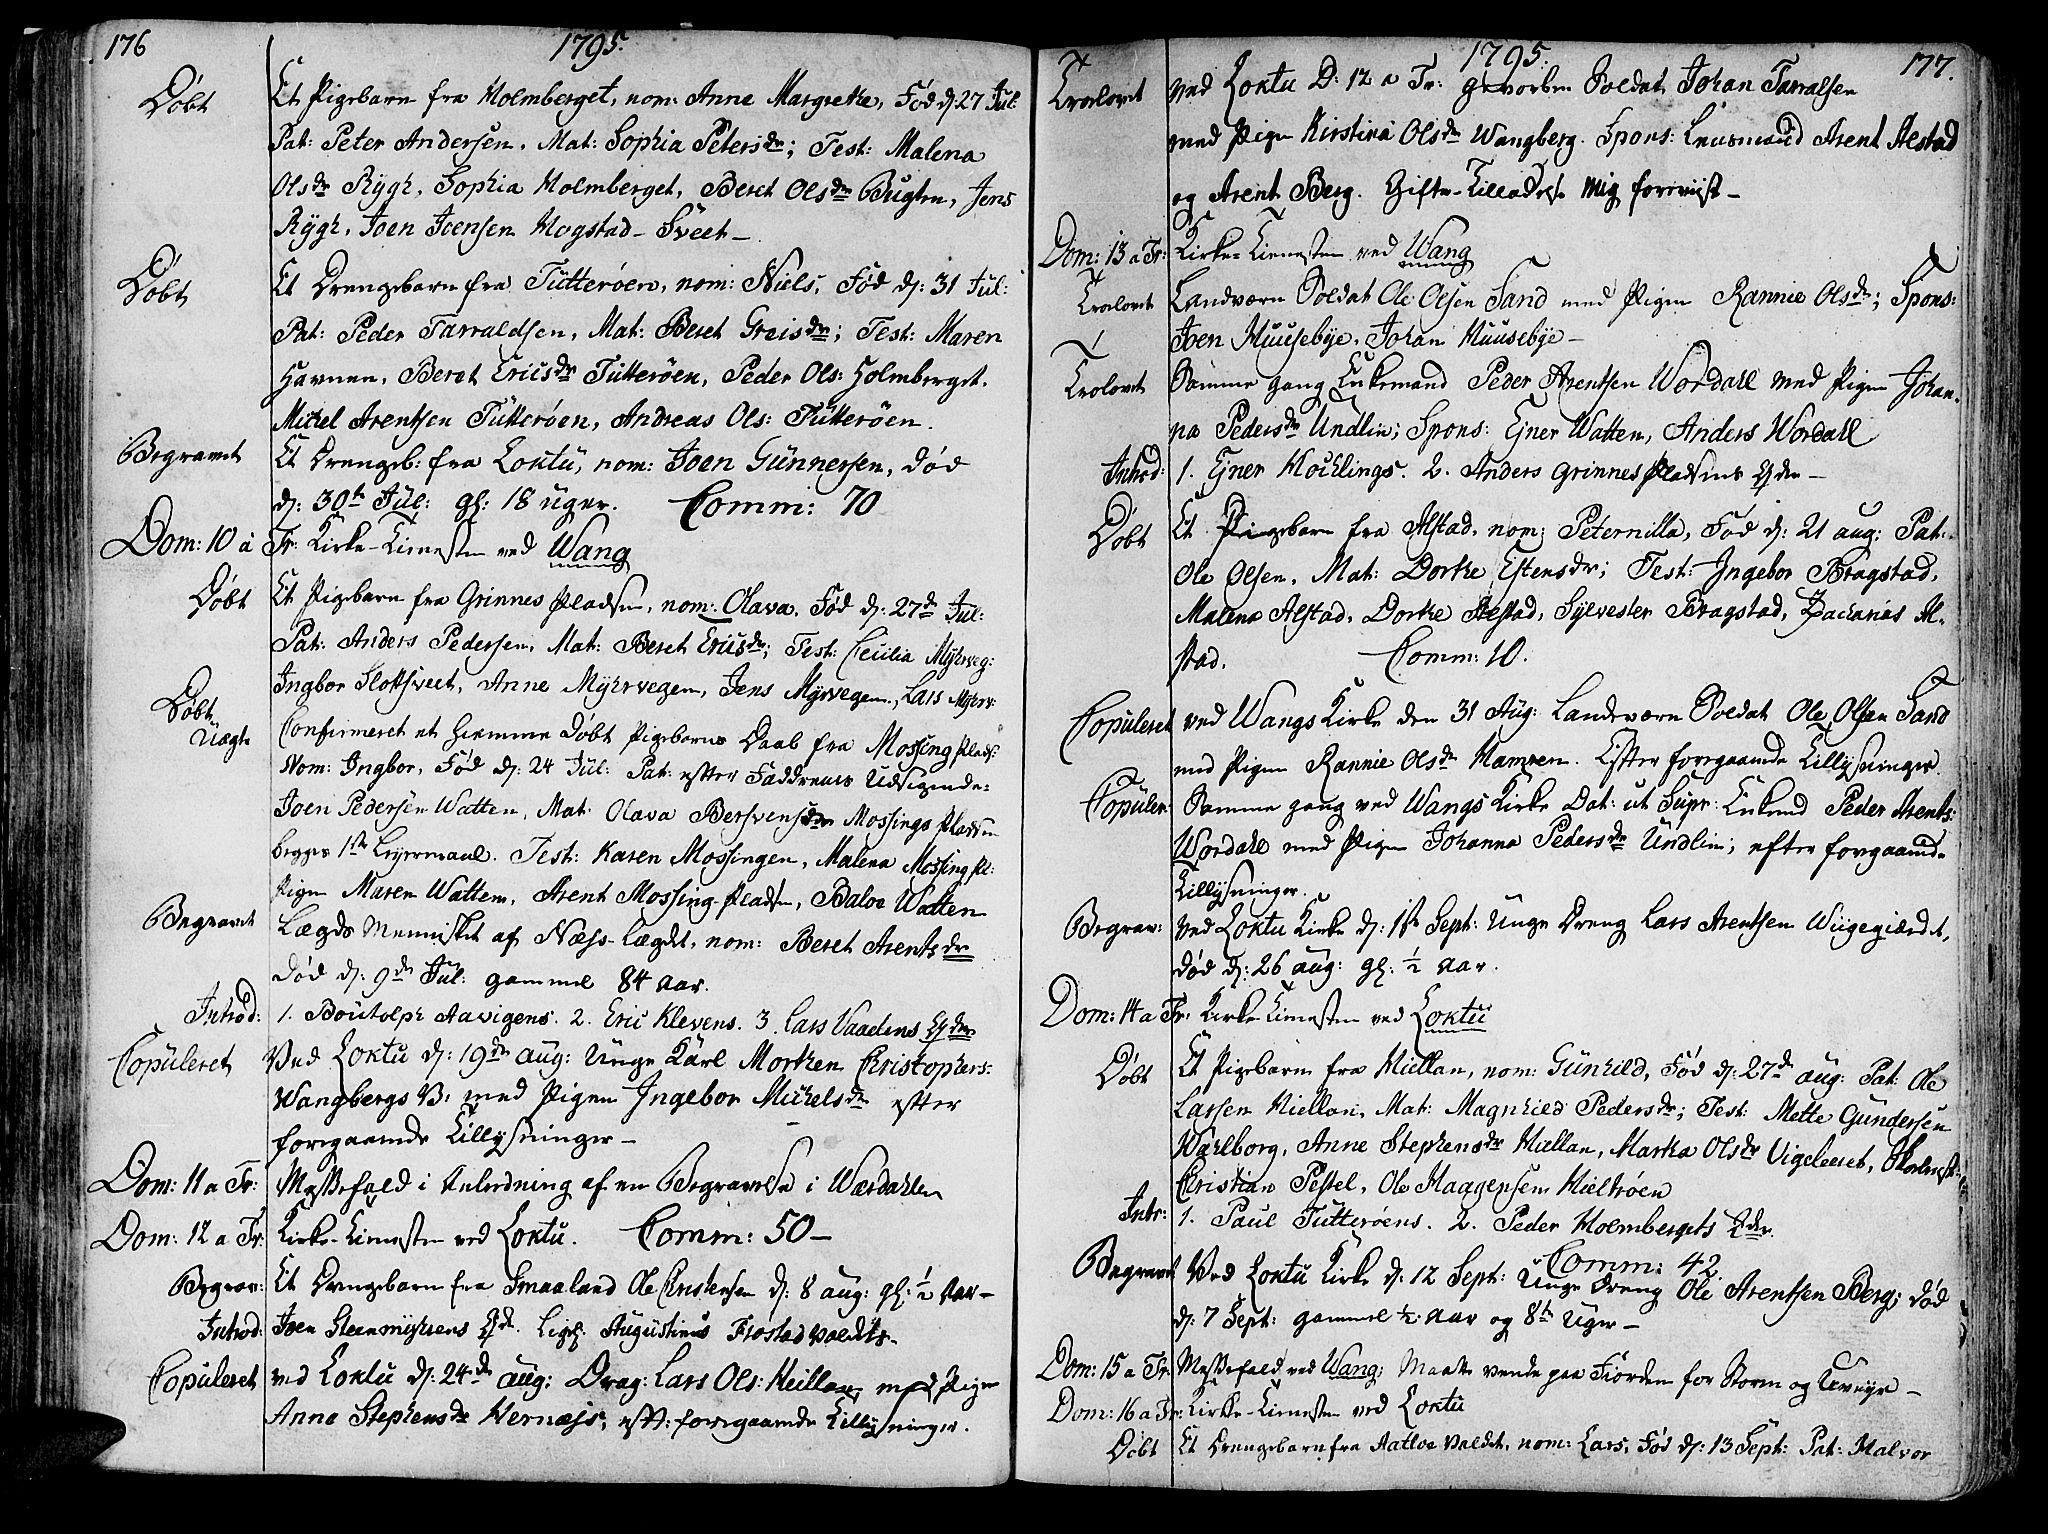 176
1795.
Døbt
Et Pigebarn fra Holmberget, nom: Anne Margrethe, Fød d: 27 Jul:
Pat: Peter Andersen, Mat: Sophia Petersdr; Test: Malena
Olsdr Rygh, Sophia Holmberget, Beret Olsdr Bugten, Jens
Rygh, Joen Joensen Hogstad-Sveet-
Døbt
Et Drengebarn fra Tutterøen, nom: Niels, Fød d: 31 Jul:
Pat: Peder Tarraldsen, Mat: Beret Greisdr; Test: Maren
Havnen, Beret Ericsdr Tutterøen, Peder Ols: Holmberget,
Michel Arentsen Tutterøen, Andreas Ols: Tutterøen.
Begravet
Et Drengeb: fra Loktu, nom: Joen Gunnersen, død
d: 30te Jul: gl: 18 uger. Comm: 70
Dom: 10 a Tr: Kirke-Tienesten ved Wang
Døbt
Et Pigebarn fra Grinnes Pladsen, nom: Olava, Fød d: 27de Jul:
Pat: Anders Pedersen, Mat: Beret Ericsdr; Test: Cecilia Myhrveg:
Ingbor Slotsveet, Anne Myhrvegen, Jens Myrvegen, Lars Myhrv:
Døbt
Uægte
Confirmeret et hiemme Døbt Pigebarns Daab fra Mossing Plads:
Nom: Ingbor, Fød d: 24 Jul: Pat: efter Faddernes Udsigende:
Joen Pedersen Watten, Mat: Olava Bersvensdr Mossings Pladsen
begges 1ste Leyermaal. Test: Karen Mossingen, Malena Mossing Pl:
Pigen Maren Watten, Arent Mossing-Pladsen, Baloe Watten
Begravet
Lægds Mennisket af Næss-lægdet, nom: Beret Arentsdr
død d: 9de Jul: gammel 84 Aar.
Introd:
1. Boutolph Aavigens. 2. Eric Klevens. 3. Lars Vaadens Qvdr
Copuleret
Ved Loktu d: 19de Aug: Unge Karl Morthen Christophers:
Wangbergs V: med Pigen Ingebor Michelsdr efter
foregaaende Tillysninger-
Dom: 11 a Tr:
Messefald i Anledning af en Begravelse i Wærdahlen
Dom: 12 a Tr:
Kirke-Tienesten ved Loktu. Comm: 50-
Begrav:
Et Drengebarn fra Smaaland Ole Christensen d: 8 aug: gl: ½ Aar-
Introd:
Joen Steenmyhrens Qvd: Lig: Augustinus Frostad valdets-
Copuleret
ved Loktu d: 24de aug: Drag: Lars Ols: Heillan, med Pigen
Anne Stephensdr Hernæss, eft: foregaaende Tillysninger.
1795.
177.
Trolovet
ved Loktu D: 12 a Tr: gevorben Soldat Johan Tarralsen
med Pigen Kirstina Olsdr Wangberg. Spons: Lensmand Arent Alstad
og Arent Berg. Gifte-Tilladelse mig forevist-
Dom: 13 a Tr:
Kirke-Tienesten ved Wang
Trolovet
Landværn Soldat Ole Olsen Sand med Pigen Rannie Olsdr; Spons:
Joen Huusebye, Johan Huusebye-
Trolovet
Samme gang Enkemand Peder Arentsen Wordahl med Pigen Johan-
na Pedersdr Undlin; Spons: Ejner Watten, Anders Wordahl
Introd:
1. Ejner Hocklings. 2. Anders Grinnes Pladsens Qvdr-
Døbt
Et Pigebarn fra Alstad, nom: Peternilla, Fød d: 21 aug: Pat:
Ole Olsen, Mat: Dorthe Estensdr; Test: Ingebor Bragstad,
Malena Alstad, Dorthe Alstad, Sylvester Bragstad, Zacharias Al-
stad. Comm: 10.
Copuleret
ved Wangs Kirke den 31 Aug: Landværn Soldat Ole Olsen Sand
med Pigen Rannie Olsdr Hamren. Efter foregaaende Tillysninger.
Copuler:
Samme gang ved Wangs Kirke Dat: ut Supr: Enkemd Peder Arents:
Wordahl med Pigen Johanna Pedersdr Undlin; efter foregaaende
Tillysninger.
Begrav:
ved Loktu Kirke d: 1ste Sept: Unge Dreng Lars Arentsen Wiigegiærdet,
død d: 26 aug: gl: ½ Aar.
Dom: 14 a Tr: Kirke-Tienesten ved Loktu
Døbt
Et Pigebarn fra Hiellan, nom: Gunhild, Fød d: 27de aug: Pat: Ole
Larsen Hiellan, Mat: Magnhild Pedersdr; Test: Mette Gundersen
Wahlborg, Anne Stephensdr Hiellan, Martha Olsdr Vigeleeret,
Christian Pestel, Ole Haagensen Hieltrøen
Intr:
1. Paul Tutterøens. 2. Peder Holmbergets Qvdr.
Comm: 42.
Begravet
Ved Loktu Kirke d: 12 Sept: Unge Dreng Ole Arentsen Berg; død
d: 7 Sept: gammel ½ Aar og 8te Uger-
Dom: 15 a Tr:
Messefald ved Wang; Maatte vende paa Fiorden for Storm og Uveyr-
Dom: 16 a Tr: Kirke-Tienesten ved Loktu
Døbt
Et Drengebarn fra Aatloe valdet, nom: Lars, Fød d: 13 Sept: Pat: Halvor